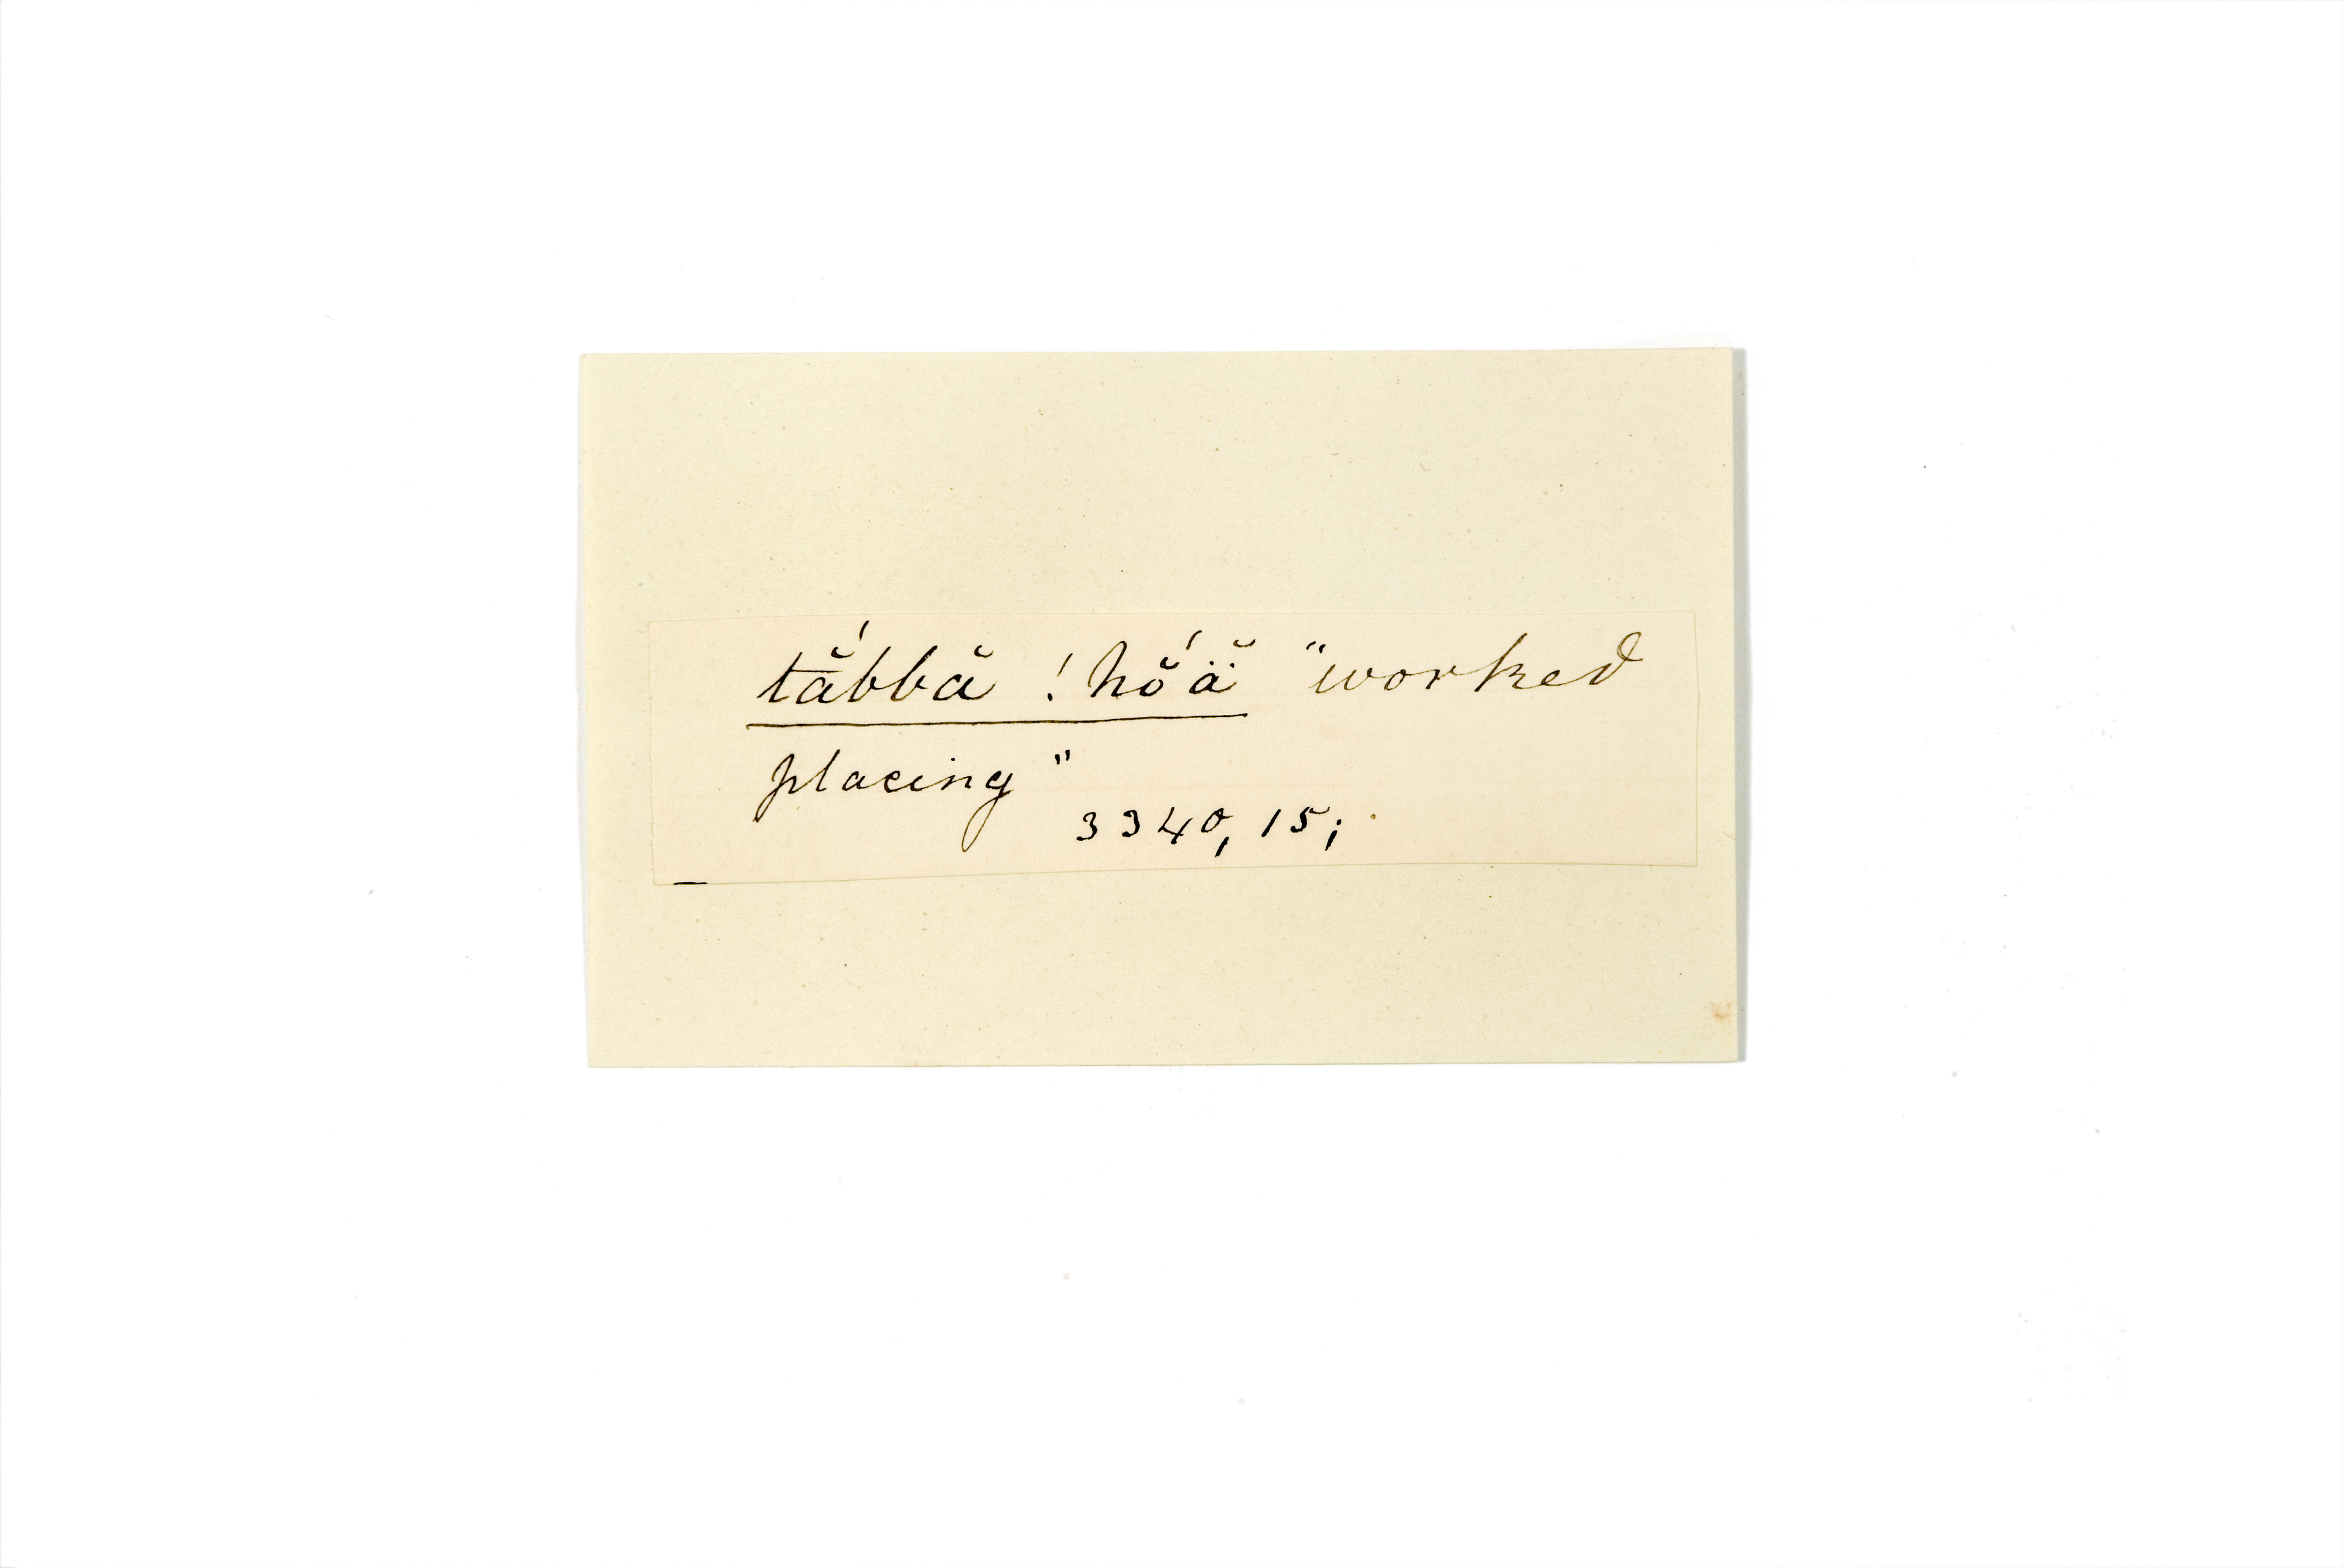 tắbbă !hŏ́ä̆ "worked
placing"
3340, 15;